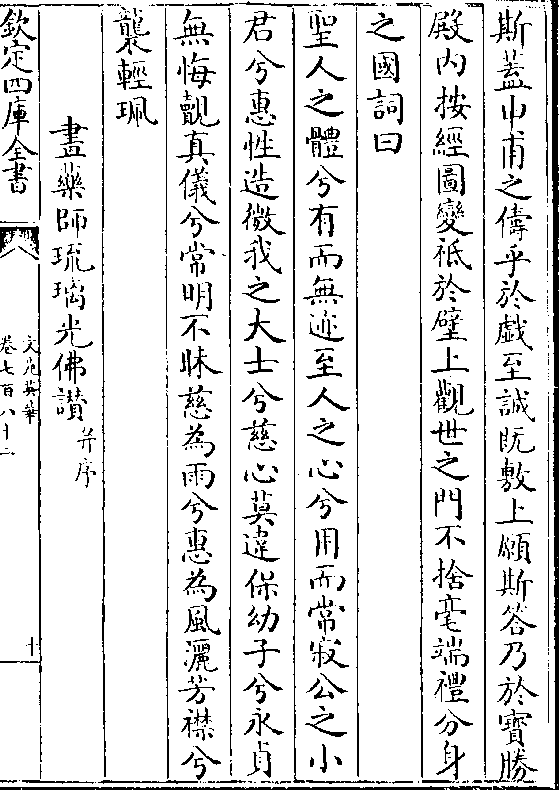 斯蓋申甫之儔乎於戲至誠既敷上願斯答乃於寶勝
殿内按經圖變祗於壁上觀世之門不捨毫端禮分身
之國詞曰
聖人之體兮有而無迹至人之心兮用而常寂公之小
君兮惠性造微我之大士兮慈心莫違保幼子兮永貞
無悔覿真儀兮常明不昧慈為雨兮惠為風灑芳襟兮
襲輕珮
畫藥師琉璃光佛讃并序
欽定四庫全書
文苑英華
卷七百八十二
十